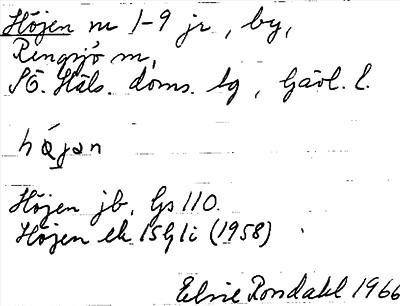 Höjen nr 1-9 jr, by,
Rengsjö sn,
SÖ. Häls. doms. bg, Gävl. l.
höjən
Höjen jb, Gs 110.
Höjen ek 15G 1i (1958)
Elsie Rondahl 1966